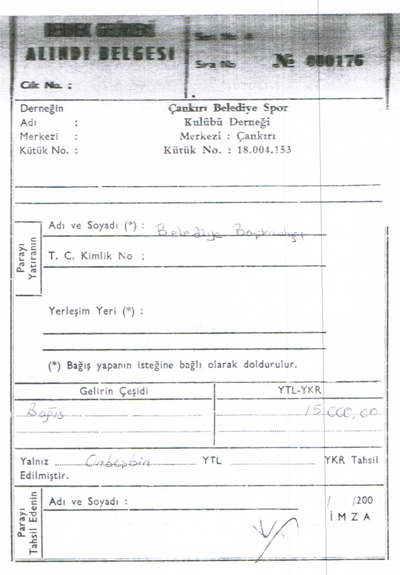 ALINDI BELGESİ
Sıra No № 000176
Cilt No. :
Derneğin
Adı : Çankırı Belediye Spor
Kulübü Derneği
Merkezi : Merkezi : Çankırı
Kütük No. : Kütük No. : 18.004.153
Parayı Yatıranın
Adı ve Soyadı (*) : Belediye Başkanlığı
T. C. Kimlik No :
Yerleşim Yeri (*) :
(*) Bağış yapanın isteğine bağlı olarak doldurulur.
Gelirin Çeşidi YTL-YKR
Bağış 15 000,00
Yalnız Onbeşbin YTL YKR Tahsil
Edilmiştir.
Parayı Tahsil Edenin
Adı ve Soyadı : / /200
İMZA